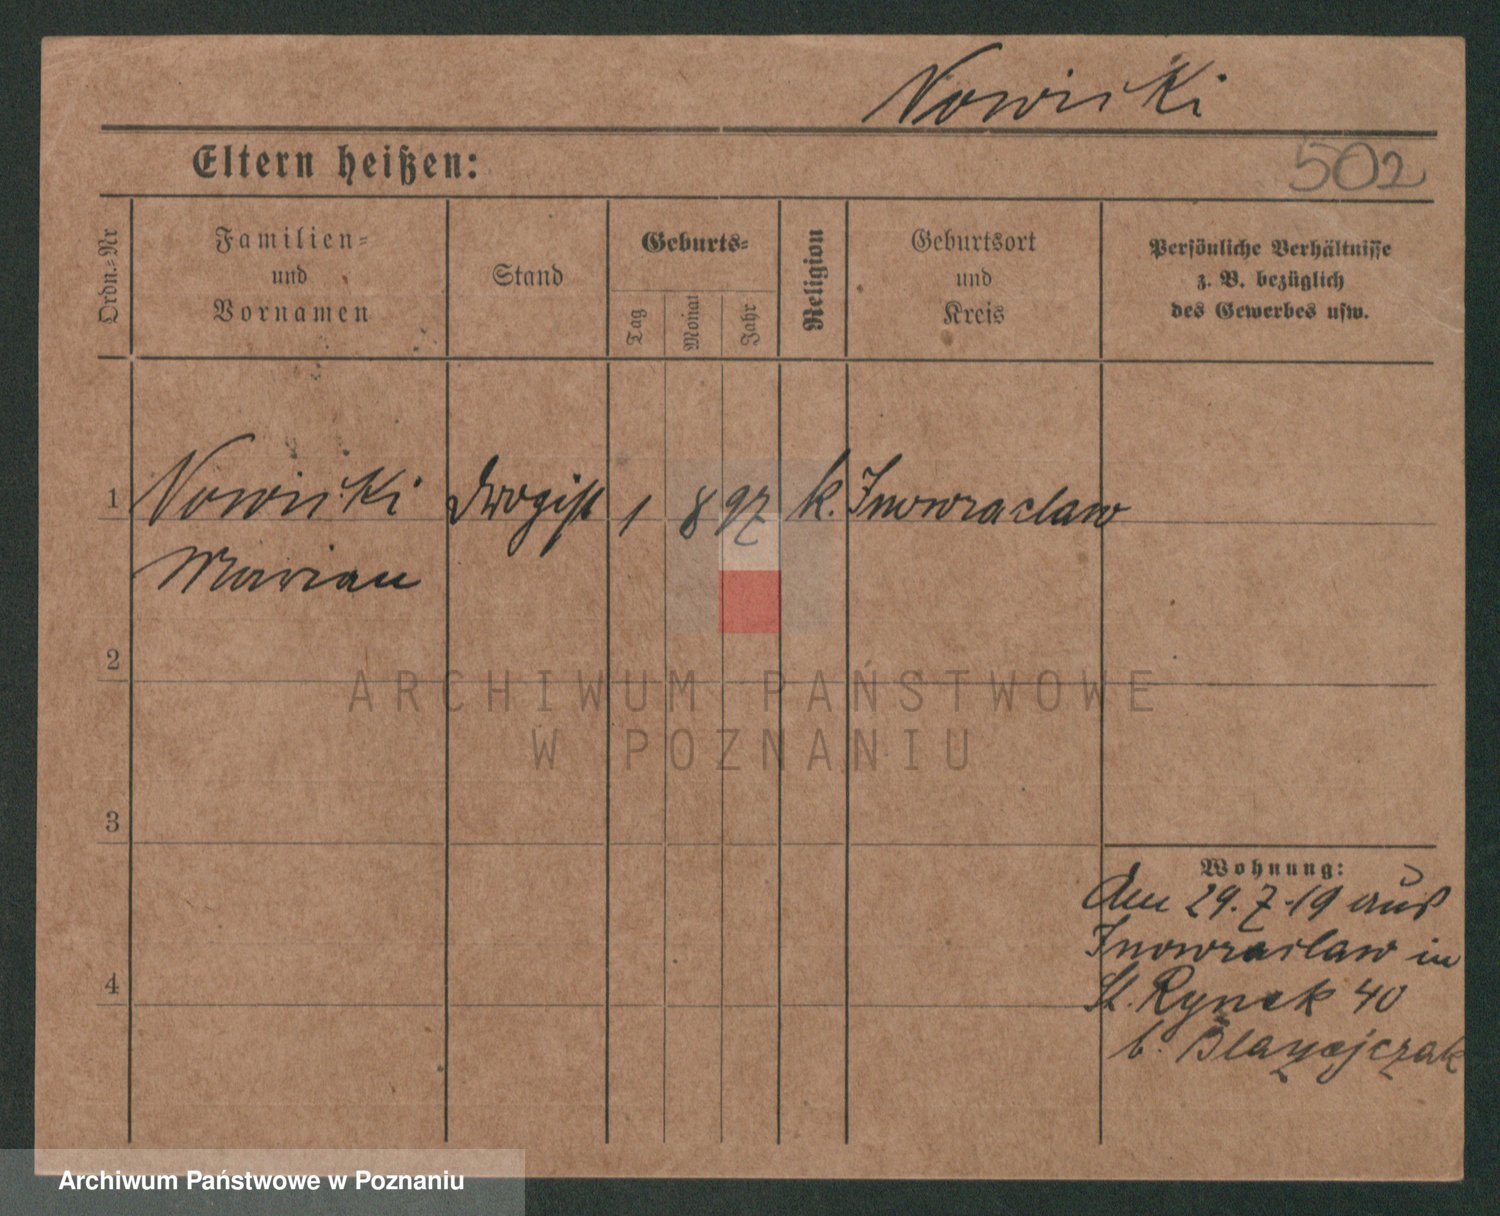 Nowicki
Eltern heißen:
502
Ordn.-Nr
Familien-
und
Vornamen
Stand
Geburts-
Tag
Monat
Jahr
Religion
Geburtsort
und
Kreis
Persönliche Verhältnisse
z. B. bezüglich
des Gewerbes usw.
1 Nowicki Drogist 1 8 97 k. Inowraclaw
Marian
2
ARCHIWUM PAŃSTWOWE
W POZNANIU
3
Wohnung:
Am 29.7.19 aus
Inowraclaw in
4
St. Rynek 40
b. Blazejczak
Archiwum Państwowe w Poznaniu